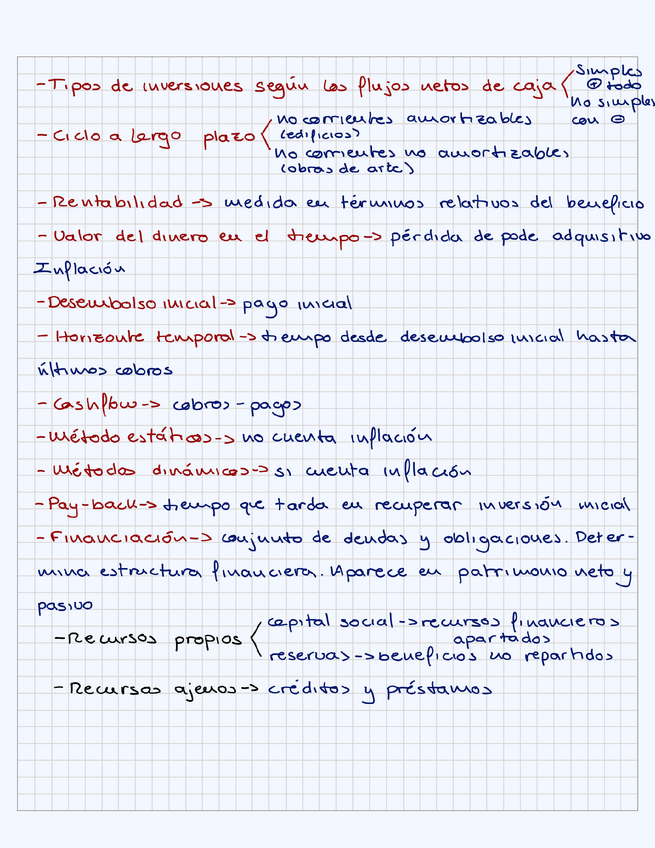 - Tipos de inversiones según los flujos netos de caja
Simples
⊕ todo
No simples
con ⊖
- Ciclo a largo plazo
no corrientes amortizables
(edificios)
no corrientes no amortizables
(obras de arte)
- Rentabilidad -> medida en términos relativos del beneficio
- Valor del dinero en el tiempo -> pérdida de pode adquisitivo
Inflación
- Desembolso inicial -> pago inicial
- Horizonte temporal -> tiempo desde desembolso inicial hasta
últimos cobros
- Cashflow -> cobros - pagos
- Método estáticos -> no cuenta inflación
- Métodos dinámicos -> si cuenta inflación
- Pay-back -> tiempo que tarda en recuperar inversión inicial
- Financiación -> conjunto de deudas y obligaciones. Deter-
mina estructura financiera. Aparece en patrimonio neto y
pasivo
- Recursos propios
capital social -> recursos financieros
apartados
reservas -> beneficios no repartidos
- Recursos ajenos -> créditos y préstamos